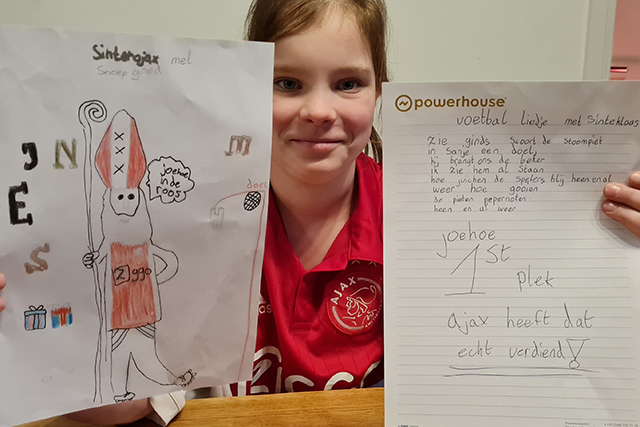 Sinterajax met
Snoep goed
JN
E
S
m
doel
joehoe
in de
roos
Ziggo
AJAX
powerhouse
voetbal liedje met Sinteklaas
Zie ginds scoort de Stoompiet
in Sanje een doel,
hij brengt ons de beker
ik zie hem al Staan
hoe juichen de Spelers blij heen en al
weer hoe gooien
de pieten pepernoten
heen en al weer.
joehoe
1st
plek
ajax heeft dat
echt verdiend!